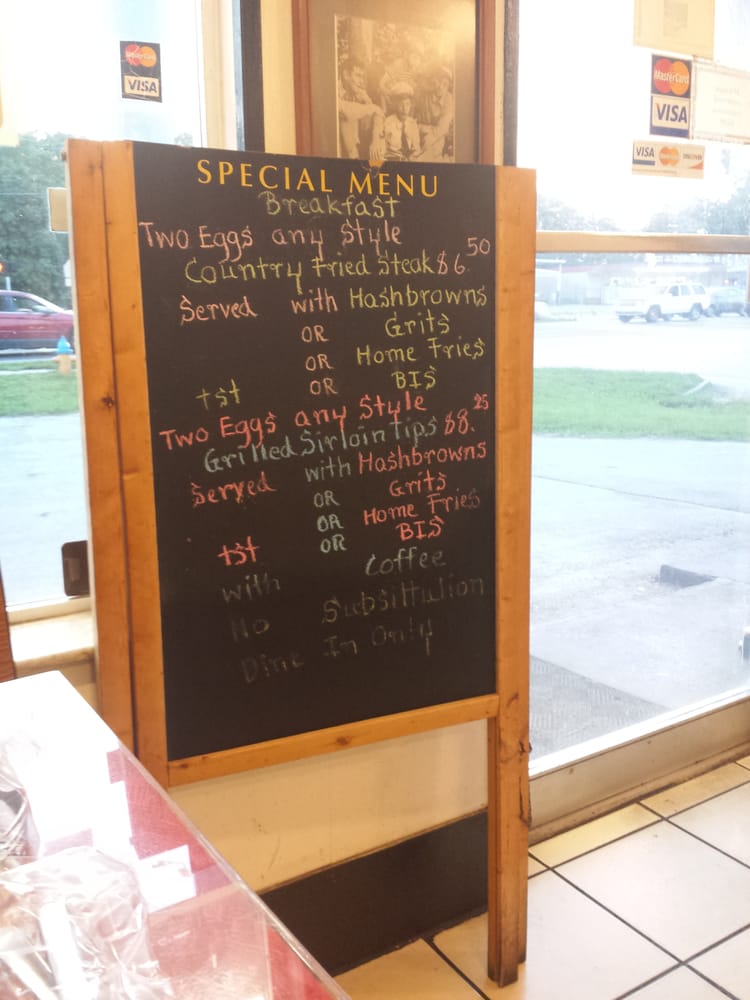 MasterCard
VISA
MasterCard
VISA
VISA MasterCard DISCOVER
SPECIAL MENU
Breakfast
Two Eggs any Style
Country Fried Steak $6.50
Served with Hashbrowns
OR Grits
OR Home Fries
tst OR BIS
Two Eggs any Style
Grilled Sirloin Tips $8.25
Served with Hashbrowns
OR Grits
OR Home Fries
tst OR BIS
with Coffee
No Subsittulion
Dine In Only